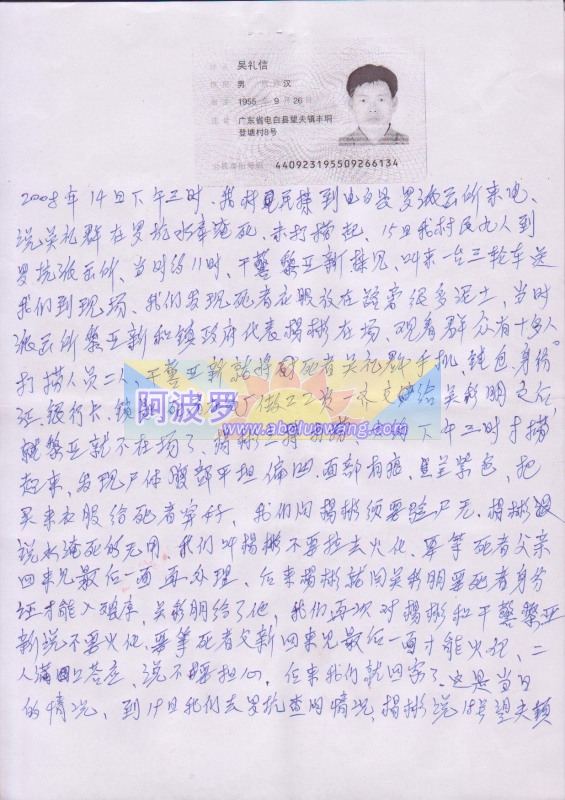 姓名 吴礼信
性别 男 民族 汉
出生 1955 年 9 月 26 日
住址 广东省电白县望夫镇丰垌
登塘村8号
公民身份号码 440923195509266134
2008年14日下午三时、我村民接到电白县罗坑派出所来电、
说吴礼群在罗坑水库淹死、未打捞起、15日我村民九人到
罗坑派出所、当时约11时、干警黎亚新接见、叫来一台三轮车送
我们到现场、我们发现死者衣服放在路旁很多泥土、当时
派出所黎亚新和镇政府代表杨彬在场、观看群众有十多人
打捞人员二人、干警亚新就将死者吴礼群手机、钱包、身份
证、银行卡、给吴彩明之后,
黎亚就不在场了、下午三时才捞
起来、发现尸体腹部平坦偏凹、面部有痕、黑兰紫色、把
买来衣服给死者穿好、我们问杨彬须要验尸无、杨彬
说水淹死的无用、我们叫杨彬不要拉去火化、要等死者父亲
回来见最后一面再处理、后来杨彬就问吴彩明要死者身份
证才能入程序、吴彩明给了他、我们再次对杨彬和干警黎亚
新说不要火化、要等死者父亲回来见最后一面才能火化、二
人满口答应、说不担心、后来我们就回家了、这是当日
的情况、到19日我们去罗坑查问情况、杨彬说18号望夫镇
阿波罗
www.aboluowang.com